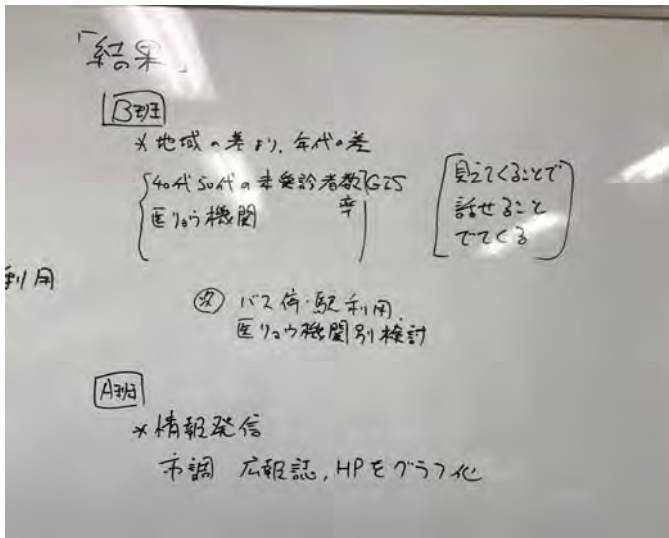 「結果」
B班
* 地域の差より、年代の差
40代50代の未受診者数 GIS
率
医りょう機関
見えてくることで
話せること
でてくる
利用
次 バス停・駅利用
医りょう機関別検討
A班
* 情報発信
市調 広報誌, HPをグラフ化